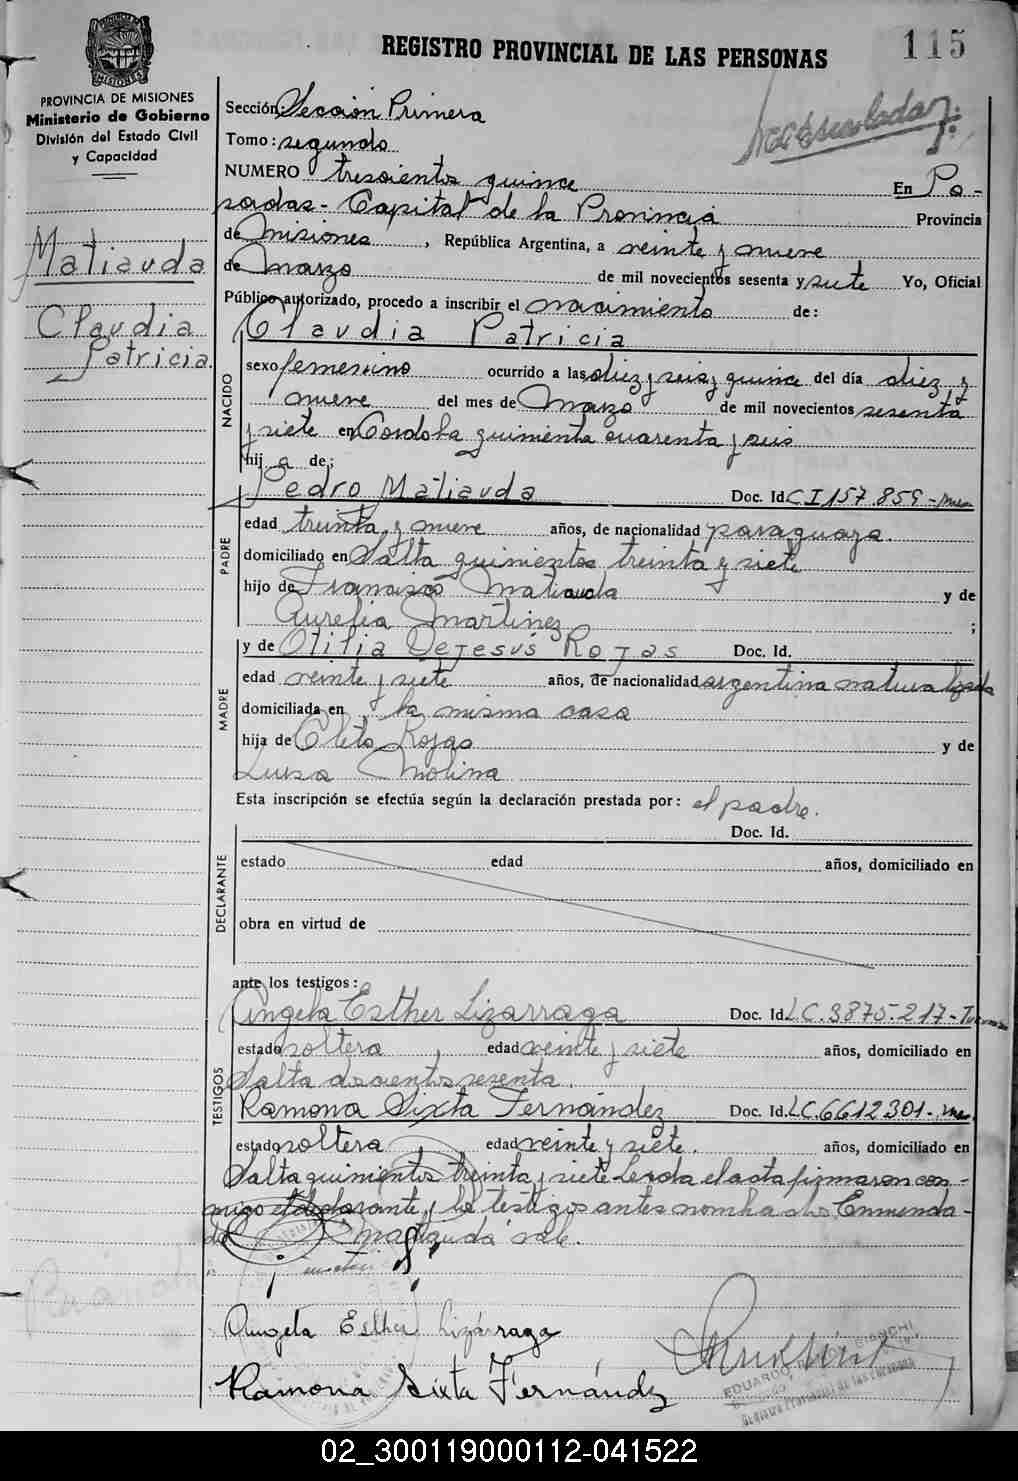 REGISTRO PROVINCIAL DE LAS PERSONAS
115
PROVINCIA DE MISIONES
Ministerio de Gobierno
División del Estado Civil
y Capacidad
Matiauda
Claudia
Patricia
Sección: Sección Primera
Tomo: segundo
NUMERO trescientos quince En Po-
sadas - Capital de la Provincia Provincia
de Misiones, República Argentina, a veinte y nueve
de Marzo de mil novecientos sesenta y siete Yo, Oficial
Público autorizado, procedo a inscribir el nacimiento de:
Claudia Patricia
NACIDO
sexo femenino ocurrido a las diez y seis y quince del día diez y
nueve del mes de Marzo de mil novecientos sesenta
y siete en Cordoba quinientos cuarenta y seis
hija de:
Pedro Matiauda Doc. Id. CI 157.859-
PADRE
edad treinta y nueve años, de nacionalidad paraguaya.
domiciliado en Salta quinientos treinta y siete
hijo de Francisco Matiauda y de
Aurelia Martinez ;
y de Otilia Dejesús Rojas Doc. Id.
MADRE
edad veinte y siete años, de nacionalidad argentina naturalizada
domiciliada en la misma casa
hija de Cleto Rojas y de
Luisa Molina
Esta inscripción se efectúa según la declaración prestada por: el padre.
Doc. Id.
DECLARANTE
estado edad años, domiciliado en
obra en virtud de
ante los testigos:
Angela Esther Lizarraga Doc. Id. LC.3875.217-
TESTIGOS
estado soltera, edad veinte y siete años, domiciliado en
Salta doscientos sesenta.
Ramona Sixta Fernández Doc. Id. LC.6612301-
estado soltera edad veinte y siete. años, domiciliado en
Salta quinientos treinta y siete Leida el acta firmaron con-
migo el declarante y los testigos antes nombrados. Enmenda-
do Matiauda vale.
Angela Esther Lizárraga
Ramona Sixta Fernández
EDUARDO BIANCHI
Registro Provincial de las Personas
02_300119000112-041522